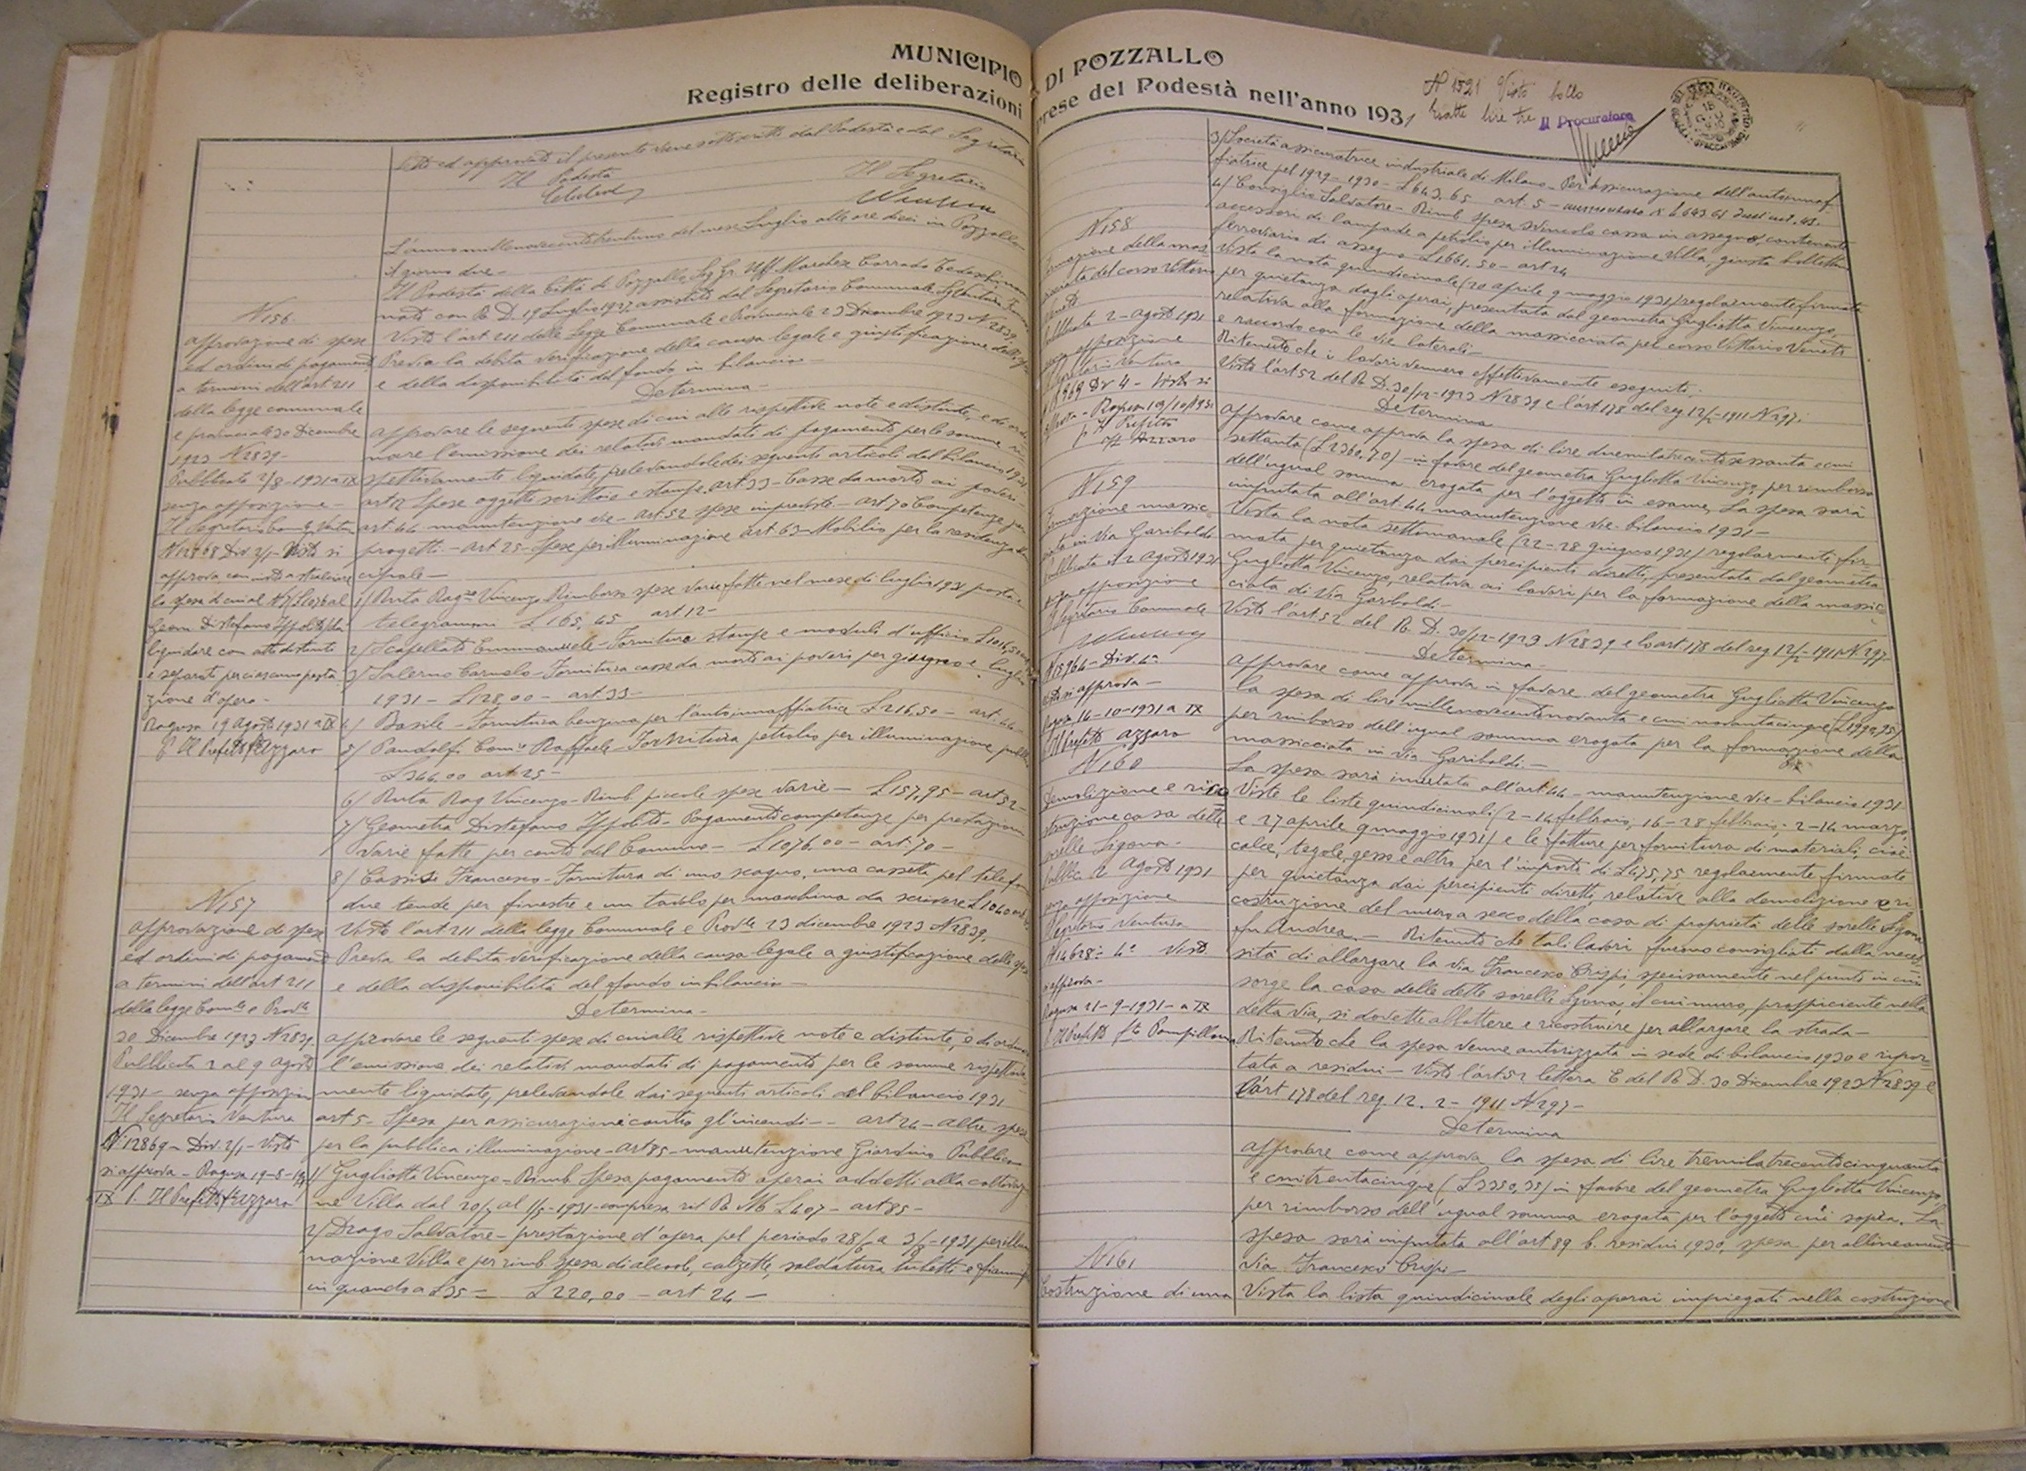 MUNICIPIO DI POZZALLO
Registro delle deliberazioni prese del Podestà nell'anno 1931
N 1521 Visto bollo
lire tre Il Procuratore
Letto ed approvato il presente viene sottoscritto dal Podestà e dal Segretario
Il Podestà Il Segretario
L'anno millenovecentotrentuno del mese Luglio alle ore dieci in Pozzallo
il giorno due -
Il Podestà della Città di Pozzallo Sig Gr. Uff Marchese Corrado Tedeschi
nato con R. D. 19 Luglio 1927 assistito dal Segretario Comunale Sig Ventura
Visto l'art 211 della legge Comunale e Provinciale 23 Dicembre 1923 N 2839
Previa la debita verificazione della causa legale e giustificazione della spesa
e della disponibilità del fondo in bilancio -
Determina -
N 156
approvazione di spese
ed ordini di pagamento
a termini dell'art 211
della legge comunale
e provinciale 30 Dicembre
1923 N 2839 -
Pubblicata 2/8 - 1931 a IX
senza opposizione -
N 12868 Div 2/1 - Visto si
approva
Geom Distefano Ippolito
liquidare con atto distinto
e separato per ciascuna presta
zione d'opera -
Ragusa 19 Agosto 1931 a IX
p Il Prefetto Azzaro
approvare le seguenti spese di cui alle rispettive note e distinte, e di ordi
nare l'emissione dei relativi mandati di pagamento per le somme ri
spettivamente liquidate, prelevandole dai seguenti articoli del bilancio 1931
art 12 Spese oggetti scrittoio e stampe. art 33 - Casse da morto ai poveri -
art 44 manutenzione vie - art. 52 spese impreviste - art 70 Competenze per
progetti - art 25 - Spese per illuminazione art 63 - Mobilio per la residenza mu
cipale -
1/ Ruta Rag. Vincenzo Rimborso spese varie fatte nel mese di luglio 1931 posta e
telegrammi £ 165,45 art 12 -
2/ Scapellato Emmanuele - Forniture stampe e moduli d'ufficio
3/ Salerno Carmelo - Fornitura casse da morto ai poveri per giugno e luglio
1931 - £ 128,00 - art. 33 -
4/ Basile - Fornitura benzina per l'autoinnaffiatrice £ 216,50 - art. 44 -
5/ Pandolfi Comm Raffaele - Fornitura petrolio per illuminazione pubbl.
£ 366,00 art. 25 -
6/ Ruta Rag Vincenzo - Rimb piccole spese varie - £ 157,95 - art 52 -
7/ Geometra Distefano Ippolito - Pagamento competenze per prestazioni
varie fatte per conto del Comune - £ 1076,00 - art. 70 -
8/ Cassisi Francesco - Fornitura di uno scagno, una cassetta pel telefono
due tende per finestre e un tavolo per macchina da scrivere
N 157
approvazione di spese
ed ordini di pagamento
a termini dell'art 211
della legge Com.le e Prov.le
30 Dicembre 1923 N 2839.
Pubblicata 2 al 9 agosto
1931 - senza opposizione
Il Segretario Ventura
N 12869 - Div. 2/1 - Visto
si approva - Ragusa 19-8-1931
IX p. Il Prefetto fto Azzaro
Visto l'art 211 della legge Comunale e Prov.le 23 dicembre 1923 N 2839.
Previa la debita verificazione della causa legale a giustificazione della spesa
e della disponibilità del fondo in bilancio -
Determina -
approvare le seguenti spese di cui alle rispettive note e distinte, e di ordinare
l'emissione dei relativi mandati di pagamento per le somme rispettiva
mente liquidate, prelevandole dai seguenti articoli del bilancio 1931
art 5 - Spesa per assicurazione contro gl'incendi - art 24 - altre spese
per la pubblica illuminazione - art 85 - manutenzione Giardino Pubblico
1/ Gugliotta Vincenzo - Rimb. Spesa pagamento operai addetti alla coltivazio
ne Villa dal compresa £ 407 - art 85 -
2/ Drago Salvatore - prestazione d'opera pel periodo per illumi
nazione Villa e per rimb. spesa di alcool, calzette, saldatura tubetti e
in quando a £ 35 - £ 220,00 - art 24 -
3/ Società assicuratrice industriale di Milano - Per assicurazione dell'autoinnaf
fiatrice pel 1929 - 1930 - £ 643,65 art. 5 -
4/ Consiglio Salvatore - Rimb spesa svincolo cassa in assegno, contenente
accessori di lampade a petrolio per illuminazione Villa, giusta bollettino
ferroviario di assegno £ 1661.50 - art 24
N 158
Formazione della mas
sicciata del corso Vittorio
Veneto
Pubblicata 2 - agosto 1931
senza opposizione
Segretario Ventura
Div 4 - Visto si
approva - Ragusa 19/10/1931
p Il Prefetto
fto Azzaro
Vista la nota quindicinale (20 aprile 9 maggio 1931) regolarmente firmata
per quietanza dagli operai, presentata dal geometra Gugliotta Vincenzo,
relativa alla formazione della massicciata pel corso Vittorio Veneto
e raccordo con le vie laterali -
Ritenuto che i lavori vennero effettivamente eseguiti.
Visto l'art 52 del R. D. 30/12 - 1923 N 2839 e l'art 178 del reg 12/2 - 1911 N 297.
Determina
approvare come approva la spesa di lire duemilatrecentosessanta e cmi
settanta (£ 2360,70) in favore del geometra Gugliotta Vincenzo per rimborso
dell'ugual somma erogata per l'oggetto in esame. La spesa sarà
imputata all'art 44 manutenzione vie - bilancio 1931 -
N 159
Formazione massic
ciata in Via Garibaldi
Pubblicata il 2 agosto 1931
senza opposizione
Il Segretario Comunale
N 15964 - Div. 4a
Visto si approva -
Ragusa 14-10-1931 a IX
p Il Prefetto Azzaro
Vista la nota settimanale (22 - 28 giugno 1931) regolarmente fir
mata per quietanza dai percipienti diretti, presentata dal geometra
Gugliotta Vincenzo, relativa ai lavori per la formazione della massic
ciata di Via Garibaldi -
Visto l'art 52 del R. D. 30/12 - 1923 N 2839 e lo art 178 del reg 12/2 - 1911 N 297 -
Determina -
approvare come approva in favore del geometra Gugliotta Vincenzo
la spesa di lire millenovecentonovanta e cmi novantacinque (£ 1990,95)
per rimborso dell'ugual somma erogata per la formazione della
massicciata in via Garibaldi -
La spesa sarà imputata all'art 44 - manutenzione vie - bilancio 1931
N 160
Demolizione e rico
struzione casa delle
sorelle Sigona -
Pubblic 2 Agosto 1931
senza opposizione
Segretario Ventura
N 14628 - 4a Visto
approva -
Ragusa 21-9-1931 - a IX
p Il Prefetto fto Pampillonia
Viste le liste quindicinali (2 - 14 febbraio, 16 - 28 febbraio; 2 - 14 marzo,
e 27 aprile 9 maggio 1931) e le fatture per fornitura di materiali, cioè:
calce, tegole, gesso e altro per l'importo di £ 475,75 regolarmente firmate
per quietanza dai percipienti diretti, relative alla demolizione e ri
costruzione del muro a secco della casa di proprietà delle sorelle Sigona
fu Andrea - Ritenuto che tali lavori furono consigliati dalla neces
sità di allargare la via Francesco Crispi, specisamente nel punto in cui
sorge la casa delle dette sorelle Sigona, il cui muro, prospiciente nella
detta via, si dovette abbattere e ricostruire per allargare la strada -
Ritenuto che la spesa venne autorizzata in sede di bilancio 1930 e ripor
tata a residui - Visto l'art 52 lettera E del R. D. 30 Dicembre 1923 N 2839 e
l'art 178 del reg. 12. 2 - 1911 N 297 -
Determina
approvare come approva la spesa di lire tremilatrecentocinquanta
e cmi trentacinque (£ 3350,35) in favore del geometra Gugliotta Vincenzo
per rimborso dell'ugual somma erogata per l'oggetto cui sopra. La
spesa sarà imputata all'art 89 b. residui 1930, spesa per allineamento
via Francesco Crispi -
N 161
Costruzione di una
Vista la lista quindicinale degli operai impiegati nella costruzione